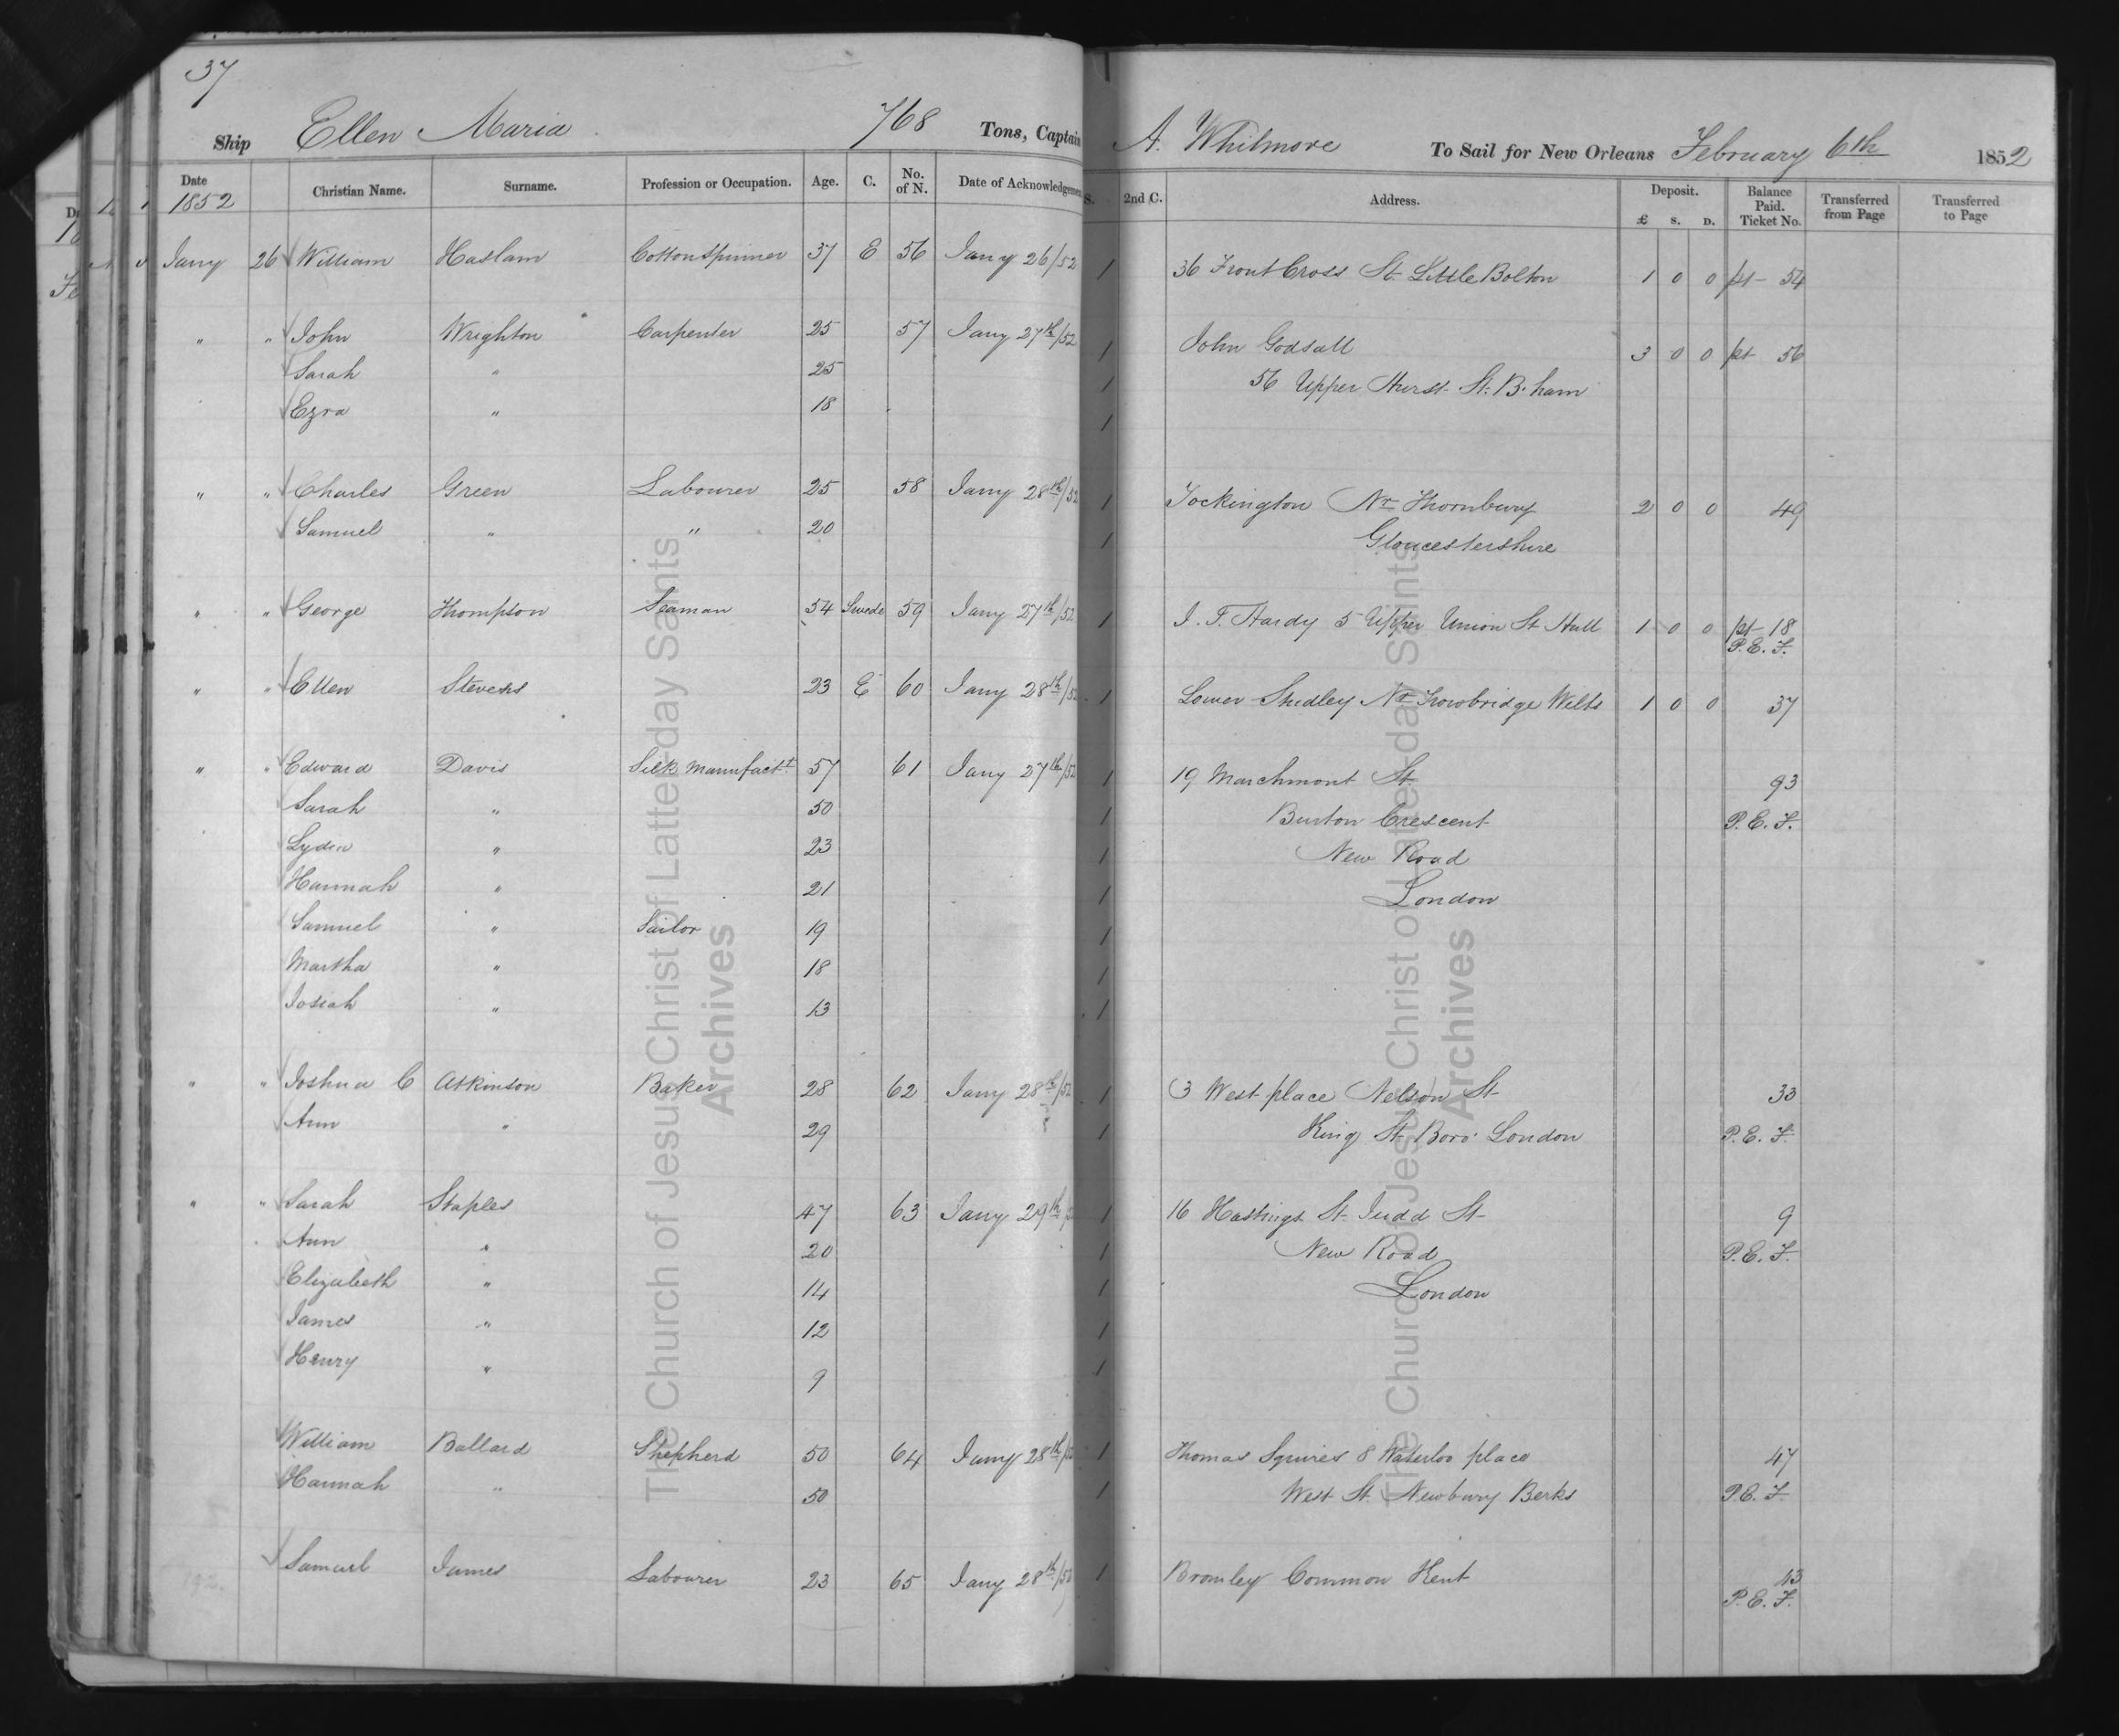 37
Ship Ellen Maria 768 Tons, Captain A. Whitmore To Sail for New Orleans February 6th 1852
Date 1852 Christian Name. Surname. Profession or Occupation. Age. C. No. of N. Date of Acknowledgemen S. 2nd C. Address. Deposit. £ s. D. Balance Paid. Ticket No. Transferred from Page Transferred to Page
Jany 26 William Haslam Cotton Spinner 37 E 56 Jany 26/52 1 36 Front Cross St. Little Bolton 1 0 0 pt 54
" " John Wrighton Carpenter 25 57 Jany 27th/52 1 John Godsall 3 0 0 pt 56
Sarah " 25 1 56 Upper Hurst St. B.ham
Ezra " 18 1
" " Charles Green Labourer 25 58 Jany 28th/52 1 Tockington Nr Thornbury 2 0 0 49
Samuel " " 20 1 Gloucestershire
" " George Thompson Seaman 54 Swede 59 Jany 27th/52 1 J. F. Hardy 5 Upper Union St Hull 1 0 0 pt 18
P.E.F.
" " Ellen Stevens 23 E 60 Jany 28th/52 1 Lower Studley Nr Trowbridge Wilts 1 0 0 37
" " Edward Davis Silk Manufactr 57 61 Jany 27th/52 1 19 Marchmont St. 93
Sarah " 50 1 Burton Crescent P.E.F.
Lydia " 23 1 New Road
Hannah " 21 1 London
Samuel " Sailor 19 1
Martha " 18 1
Josiah " 13 1
" " Joshua C Atkinson Baker 28 62 Jany 28th/52 1 3 West place Nelson St 33
Ann " 29 1 King St Boro' London P.E.F.
" " Sarah Staples 47 63 Jany 29th 1 16 Hastings St Judd St 9
Ann " 20 1 New Road P.E.F.
Elizabeth " 14 1 London
James " 12 1
Henry " 9 1
William Ballard Shepherd 50 64 Jany 28th/52 1 Thomas Squires 8 Waterloo place 47
Hannah " 50 1 West St. Newbury Berks P.E.F.
Samuel James Labourer 23 65 Jany 28th/52 1 Bromley Common Kent 43
P.E.F.
The Church of Jesus Christ of Latter-day Saints
Archives
The Church of Jesus Christ of Latter-day Saints
Archives